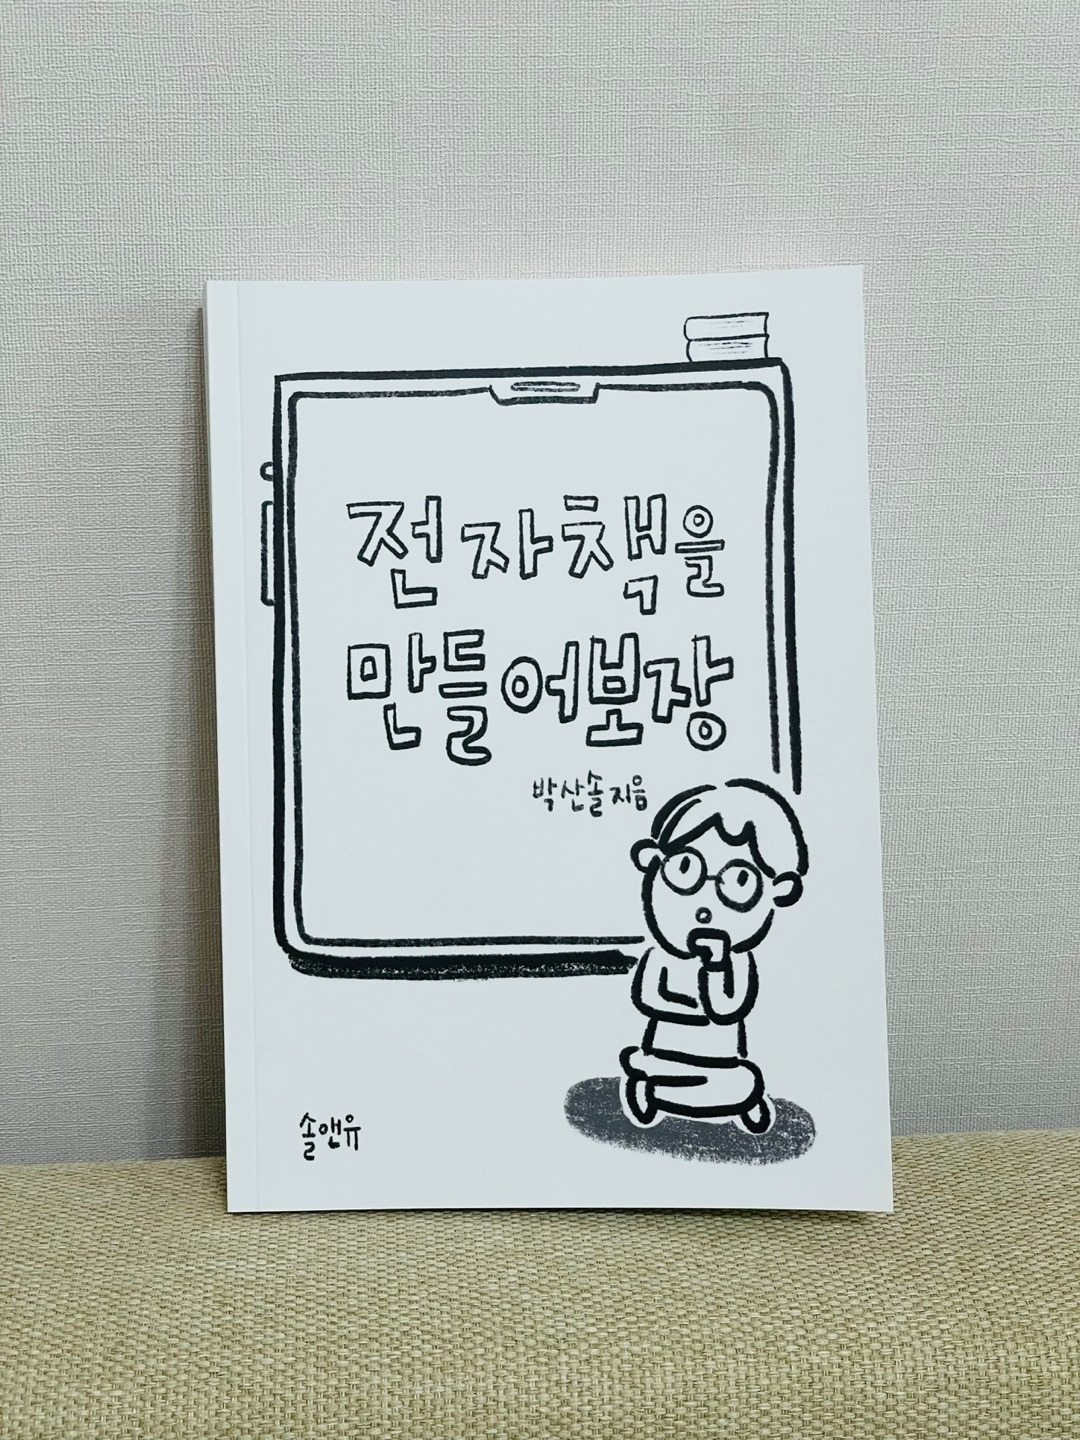 전자책을
만들어보장
박산솔 지음
솔앤유